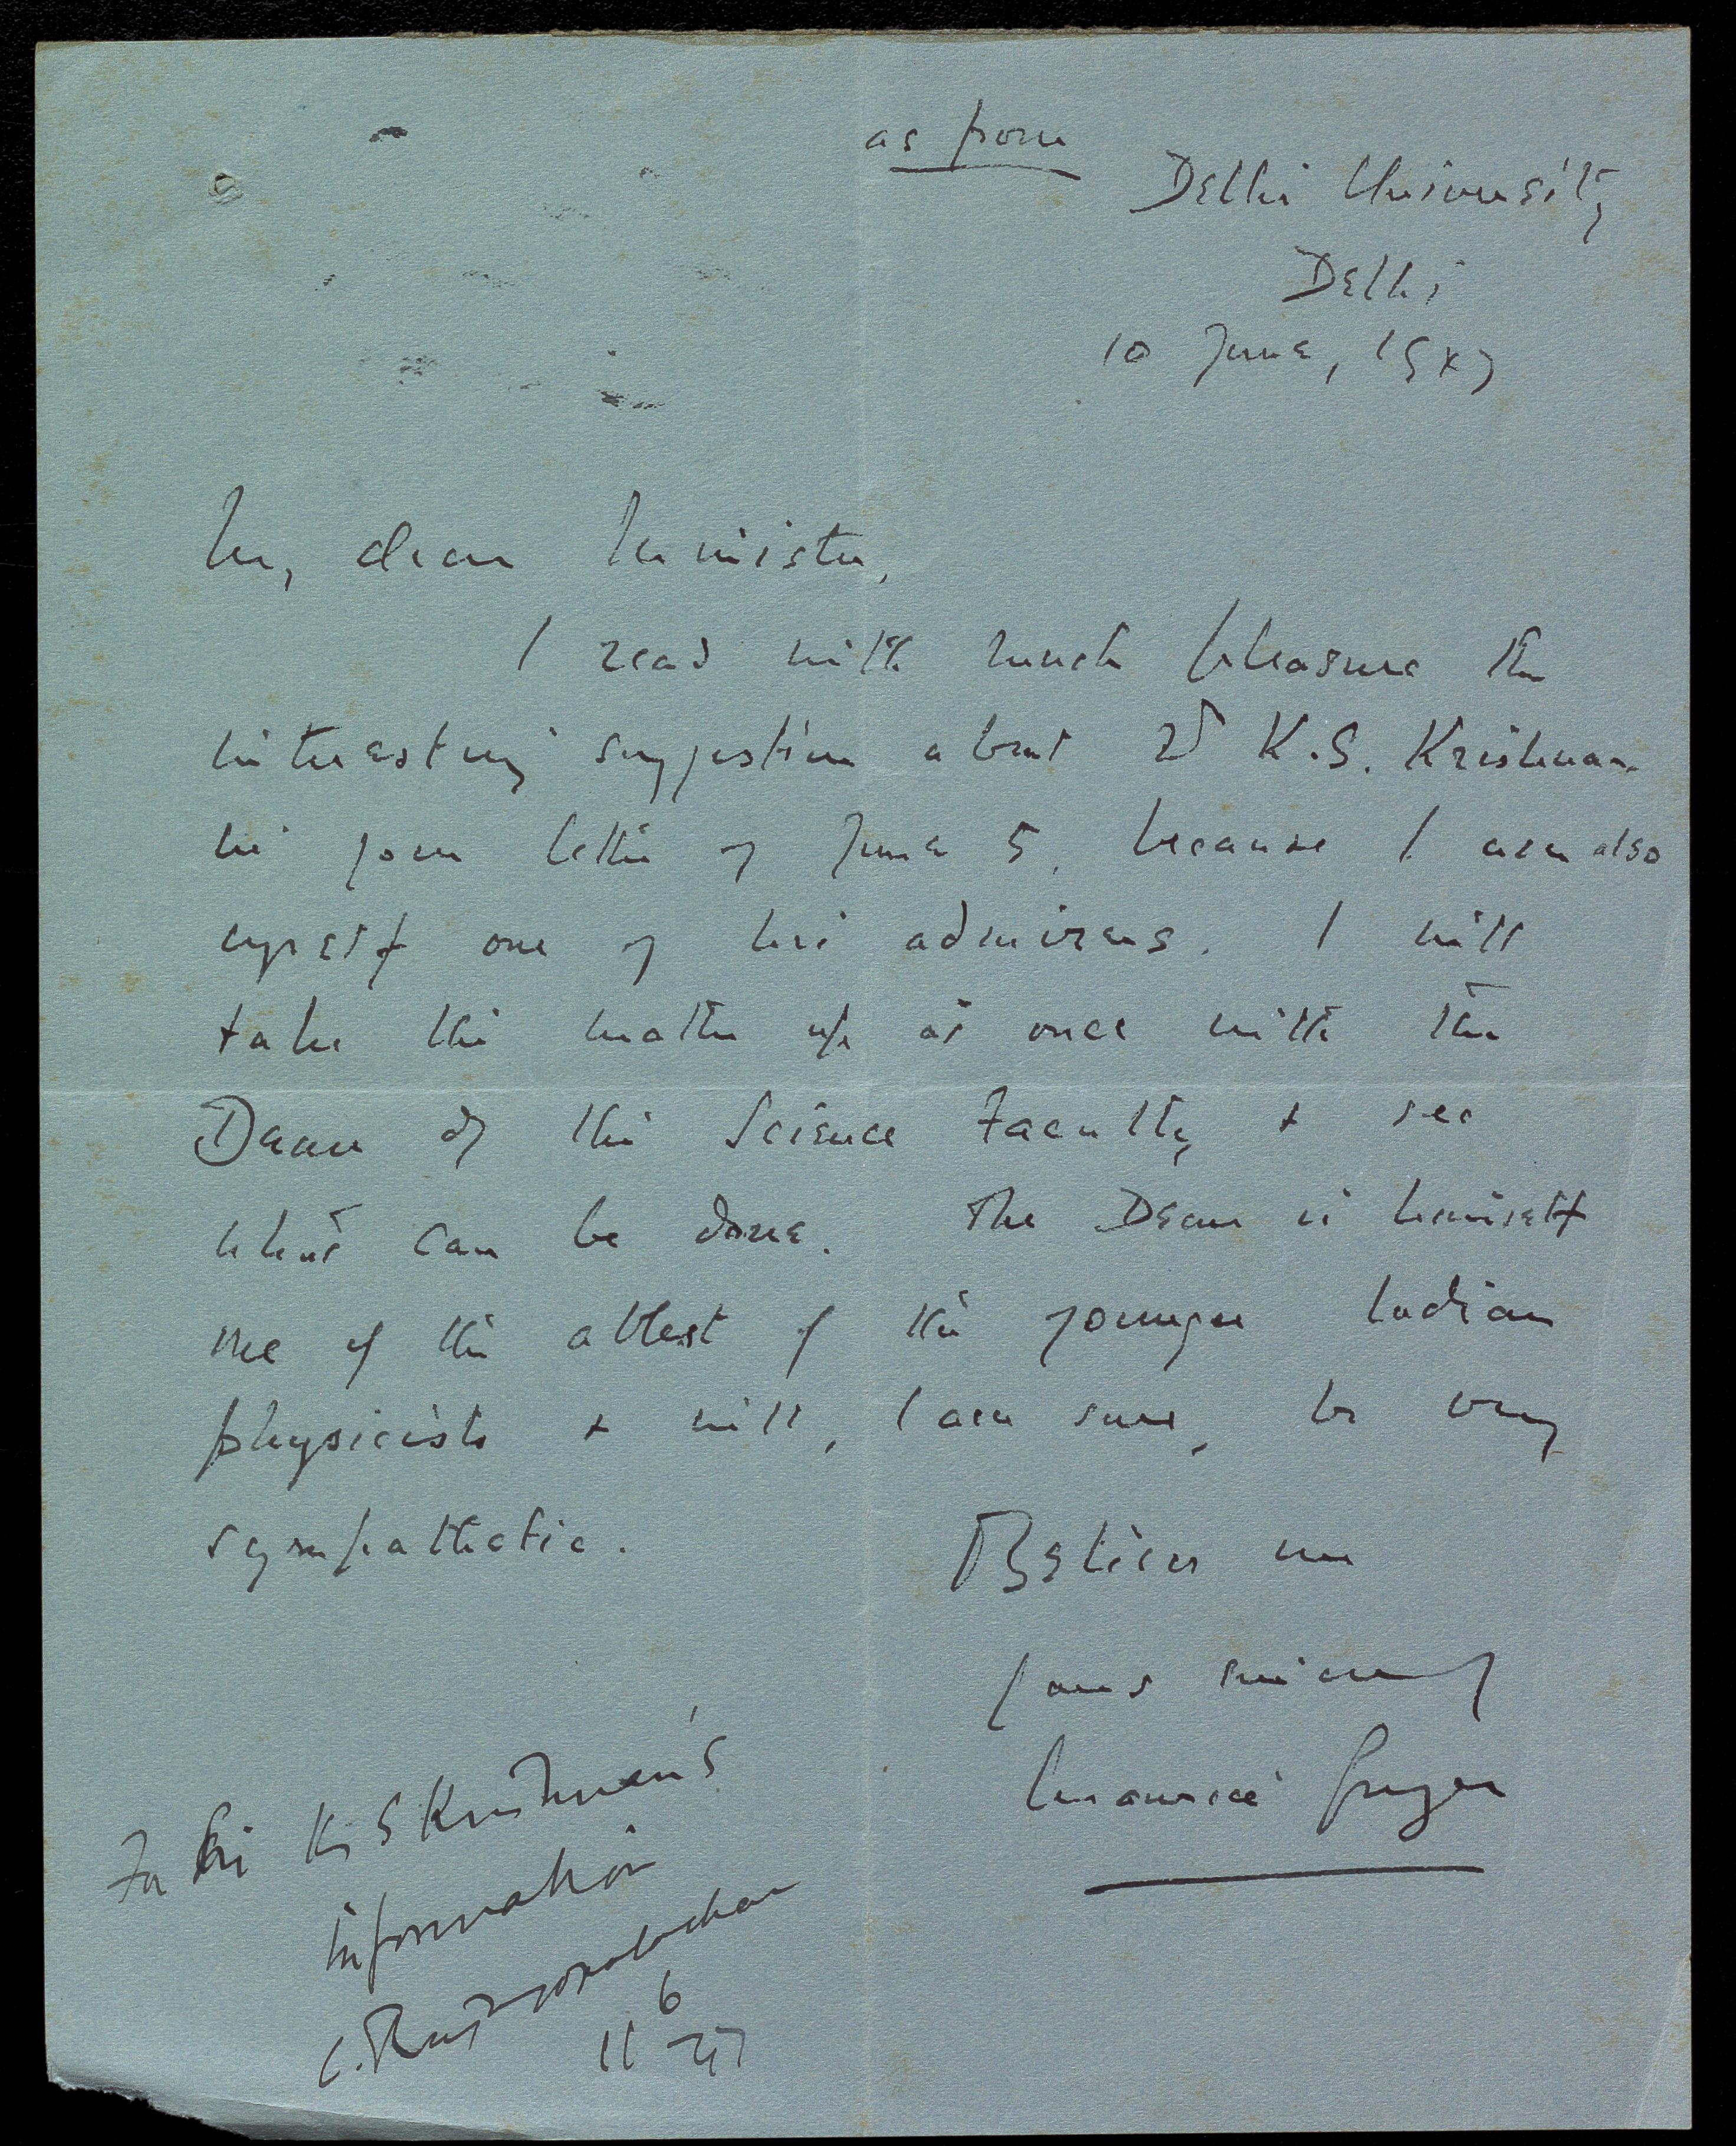 as from
Delhi University
Delhi
10 June, 1947
My dear Minister,
I read with much pleasure the
interesting suggestion about Dr K.S. Krishnan
in your letter of June 5, because I am also
myself one of his admirers. I will
take the matter up at once with the
Dean of the Science Faculty & see
what can be done. The Dean is himself
one of the ablest of the younger Indian
physicists & will, I am sure, be very
sympathetic.
Believe me
Yours sincerely
Maurice Gwyer
For Sri K S Krishnan's
information
C. Rajagopalachari
11 6 47